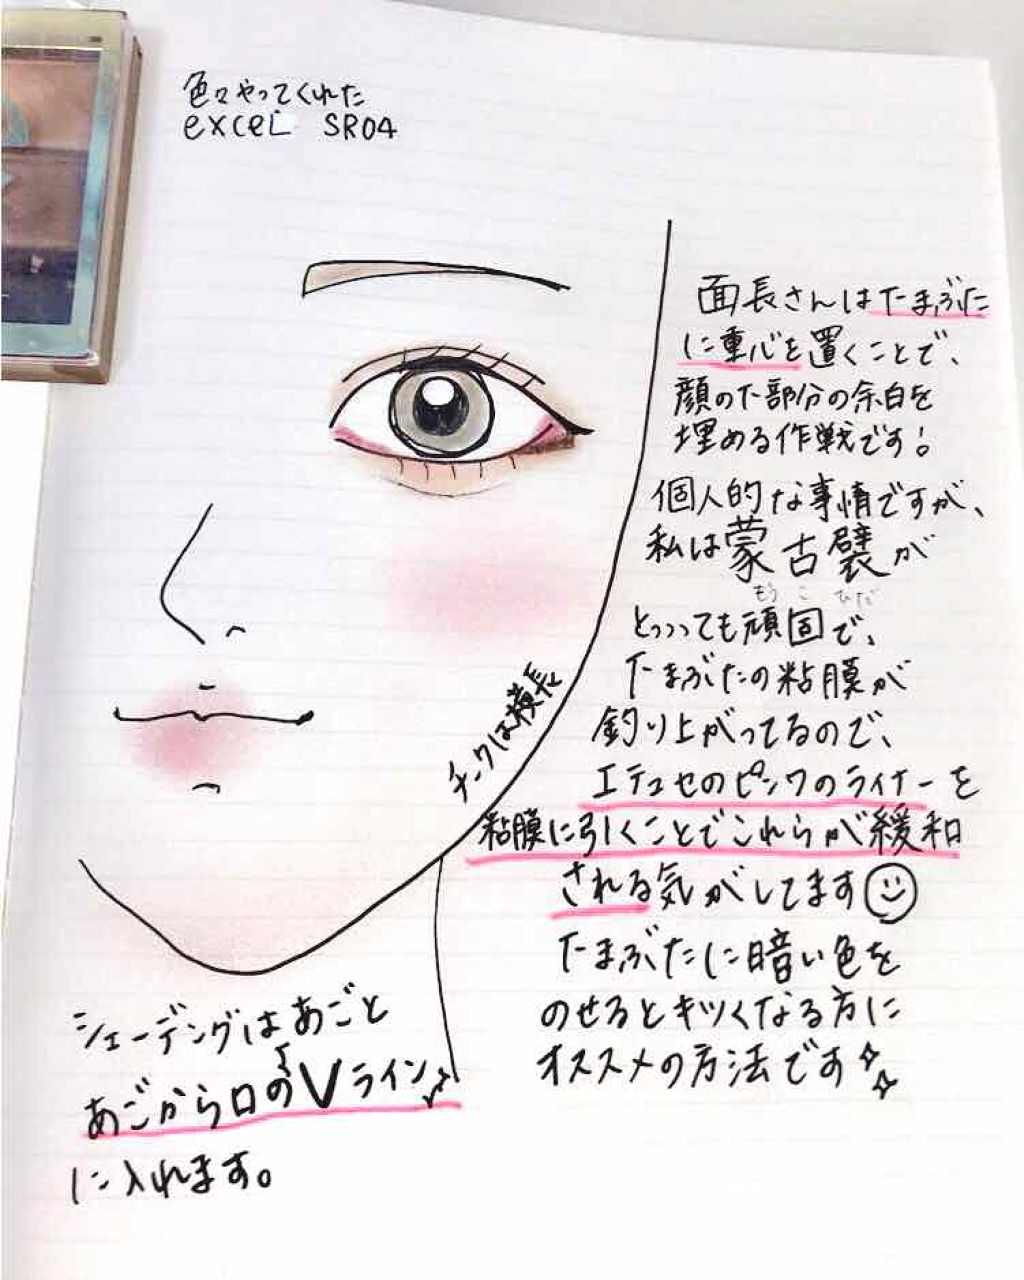 色々やってくれた
excel SR04
面長さんは下まぶた
に重心を置くことで、
顔の下部分の余白を
埋める作戦です!
個人的な事情ですが、
私は蒙古襞が
もうこひだ
とっっっても頑固で、
下まぶたの粘膜が
釣り上がってるので、
エテュセのピンクのライナーを
粘膜に引くことでこれらが緩和
される気がしてます
下まぶたに暗い色を
のせるとキツくなる方に
オススメの方法です
チークは横長
シェーディングはあごと
あごから口のVライン
に入れます。